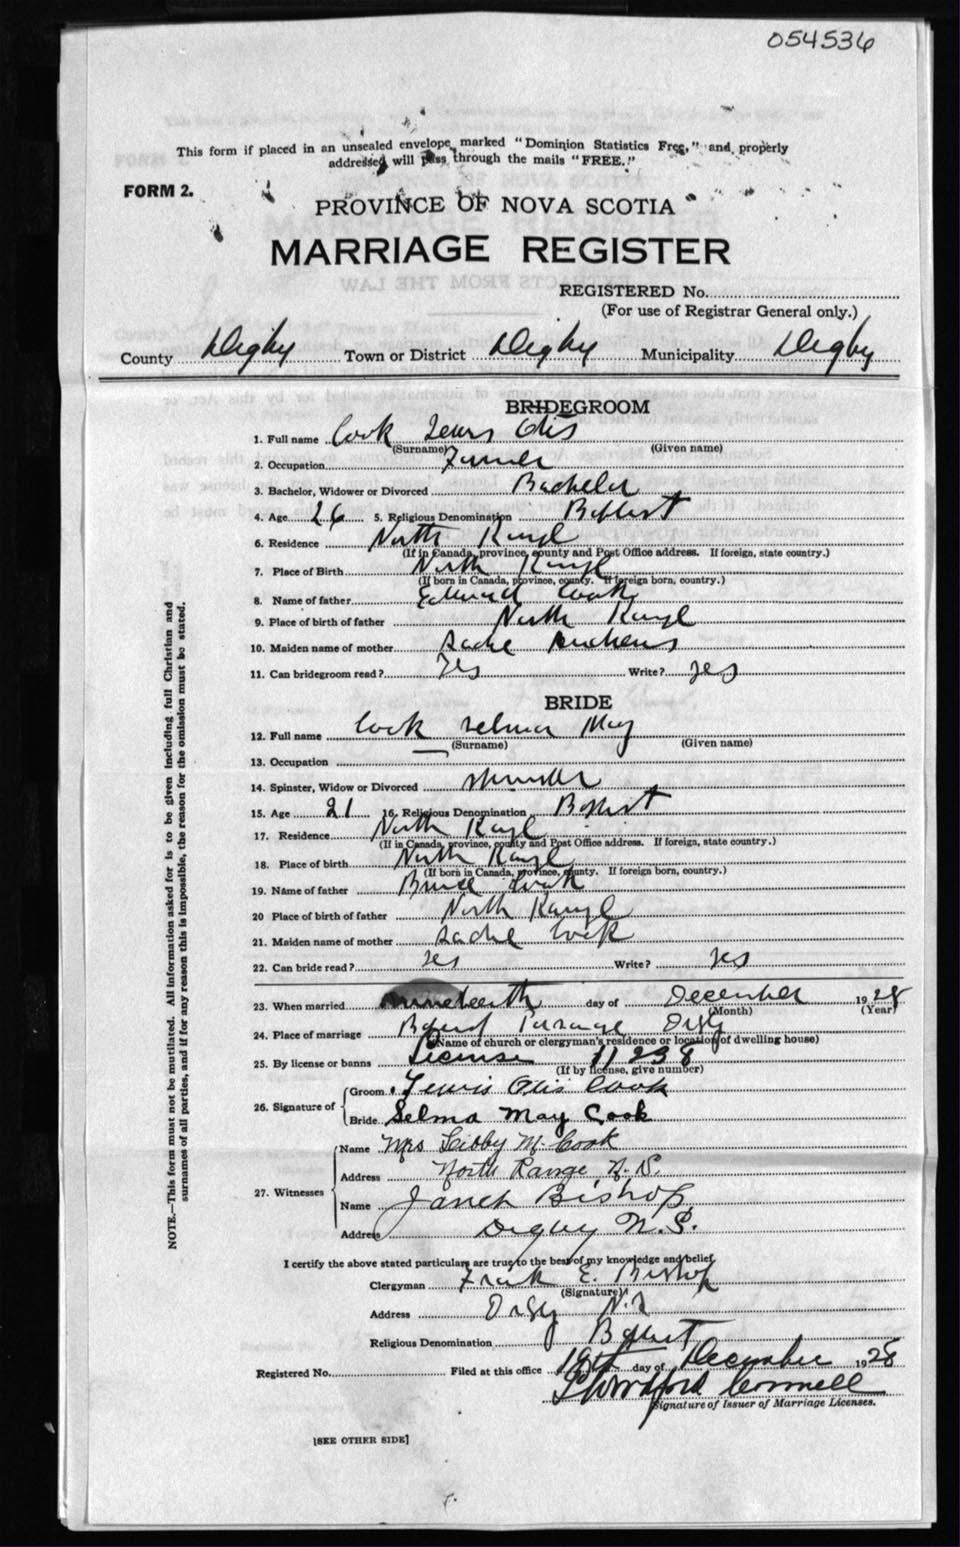 054536
This form if placed in an unsealed envelope marked "Dominion Statistics Free," and properly
addressed will pass through the mails "FREE."
FORM 2.
PROVINCE OF NOVA SCOTIA
MARRIAGE REGISTER
REGISTERED No.
(For use of Registrar General only.)
County Digby Town or District Digby Municipality Digby
BRIDEGROOM
1. Full name Cook Lewis Otis
(Surname) (Given name)
2. Occupation Farmer
3. Bachelor, Widower or Divorced Bachelor
4. Age 26 5. Religious Denomination Baptist
6. Residence North Range
(If in Canada, province, county and Post Office address. If foreign, state country.)
7. Place of Birth North Range
(If born in Canada, province, county. If foreign born, country.)
8. Name of father Edward Cook
9. Place of birth of father North Range
10. Maiden name of mother Sadie
11. Can bridegroom read? Yes Write? Yes
BRIDE
12. Full name Cook Selma May
(Surname) (Given name)
13. Occupation
14. Spinster, Widow or Divorced Spinster
15. Age 21 16. Religious Denomination Baptist
17. Residence North Range
(If in Canada, province, county and Post Office address. If foreign, state country.)
18. Place of birth North Range
(If born in Canada, province, county. If foreign born, country.)
19. Name of father Cook
20 Place of birth of father North Range
21. Maiden name of mother Sadie Cook
22. Can bride read? Yes Write? Yes
23. When married nineteenth day of December 1928
(Month) (Year)
24. Place of marriage Baptist Parsonage Digby
(Name of church or clergyman's residence or location of dwelling house)
25. By license or banns License 11238
(If by license, give number)
26. Signature of
Groom Lewis Otis Cook
Bride Selma May Cook
27. Witnesses
Name Mrs Libby M. Cook
Address North Range, N.S.
Name Janet Bishop
Address Digby N.S.
I certify the above stated particulars are true to the best of my knowledge and belief.
Clergyman Frank E. Bishop
(Signature)
Address Digby N.S
Religious Denomination Baptist
Registered No. Filed at this office 19th day of December 1928
Cornwell
Signature of Issuer of Marriage Licenses.
[SEE OTHER SIDE]
NOTE.—This form must not be mutilated. All information asked for is to be given including full Christian and
surnames of all parties, and if for any reason this is impossible, the reason for the omission must be stated.